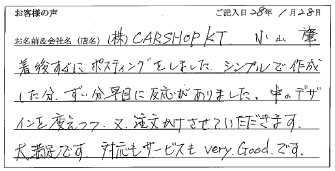 お客様の声 ご記入日28年 1月28日
お名前&会社名(店名) (株)CARSHOP KT 小山 肇
着後すぐに ポスティングをしました。シンプルで作成
した分、ずい分早目に反応がありました。中のデザ
インを変えつつ、又、注文かけさせていただきます。
大満足です。対応もサービスも very. Good. です。